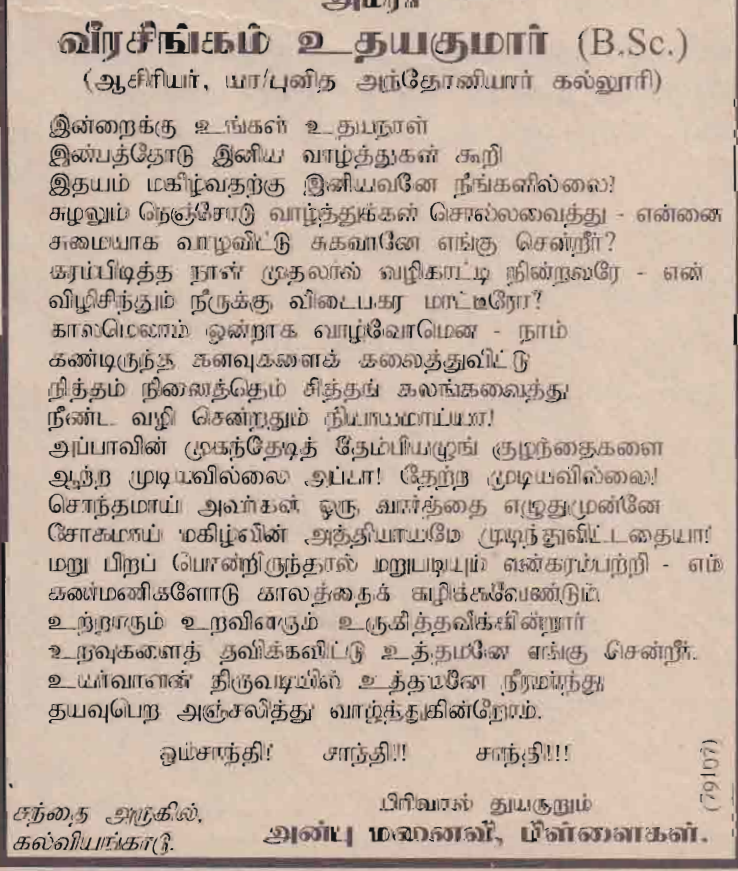 அமரர்
வீரசிங்கம் உதயகுமார் (B.Sc.)
(ஆசிரியர், யா/புனித அந்தோனியார் கல்லூரி)
இன்றைக்கு உங்கள் உதயநாள்
இன்பத்தோடு இனிய வாழ்த்துகள் கூறி
இதயம் மகிழ்வதற்கு இனியவனே நீங்களில்லை!
சுழலும் நெஞ்சோடு வாழ்த்துக்கள் சொல்லவைத்து - என்னை
சுமையாக வாழவிட்டு சுகவானே எங்கு சென்றீர்?
கரம்பிடித்த நாள் முதலாய் வழிகாட்டி நின்றவரே - என்
விழிசிந்தும் நீருக்கு விடைபகர மாட்டீரோ?
காலமெலாம் ஒன்றாக வாழ்வோமென - நாம்
கண்டிருந்த கனவுகளைக் கலைத்துவிட்டு
நித்தம் நினைத்தெம் சித்தங் கலங்கவைத்து
நீண்ட வழி சென்றதும் நியாயமாய்யா!
அப்பாவின் முகந்தேடித் தேம்பியழுங் குழந்தைகளை
ஆற்ற முடியவில்லை அப்பா! தேற்ற முடியவில்லை!
சொந்தமாய் அவர்கள் ஒரு வார்த்தை எழுதுமுன்னே
சோகமாய் மகிழ்வின் அத்தியாயமே முடிந்துவிட்டதையா!
மறு பிறப் பொன்றிருந்தால் மறுபடியும் என்கரம்பற்றி - எம்
கண்மணிகளோடு காலத்தைக் கழிக்கவேண்டும்.
உற்றாரும் உறவினரும் உருகித்தவிக்கின்றார்
உறவுகளைத் தவிக்கவிட்டு உத்தமனே எங்கு சென்றீர்.
உயர்வாளன் திருவடியில் உத்தமனே நீரமர்ந்து
தயவுபெற அஞ்சலித்து வாழ்த்துகின்றோம்.
ஓம்சாந்தி! சாந்தி!! சாந்தி!!!
பிரிவால் துயருறும்
அன்பு மனைவி, பிள்ளைகள்.
சந்தை அருகில்,
கல்வியங்காடு.
(79107)